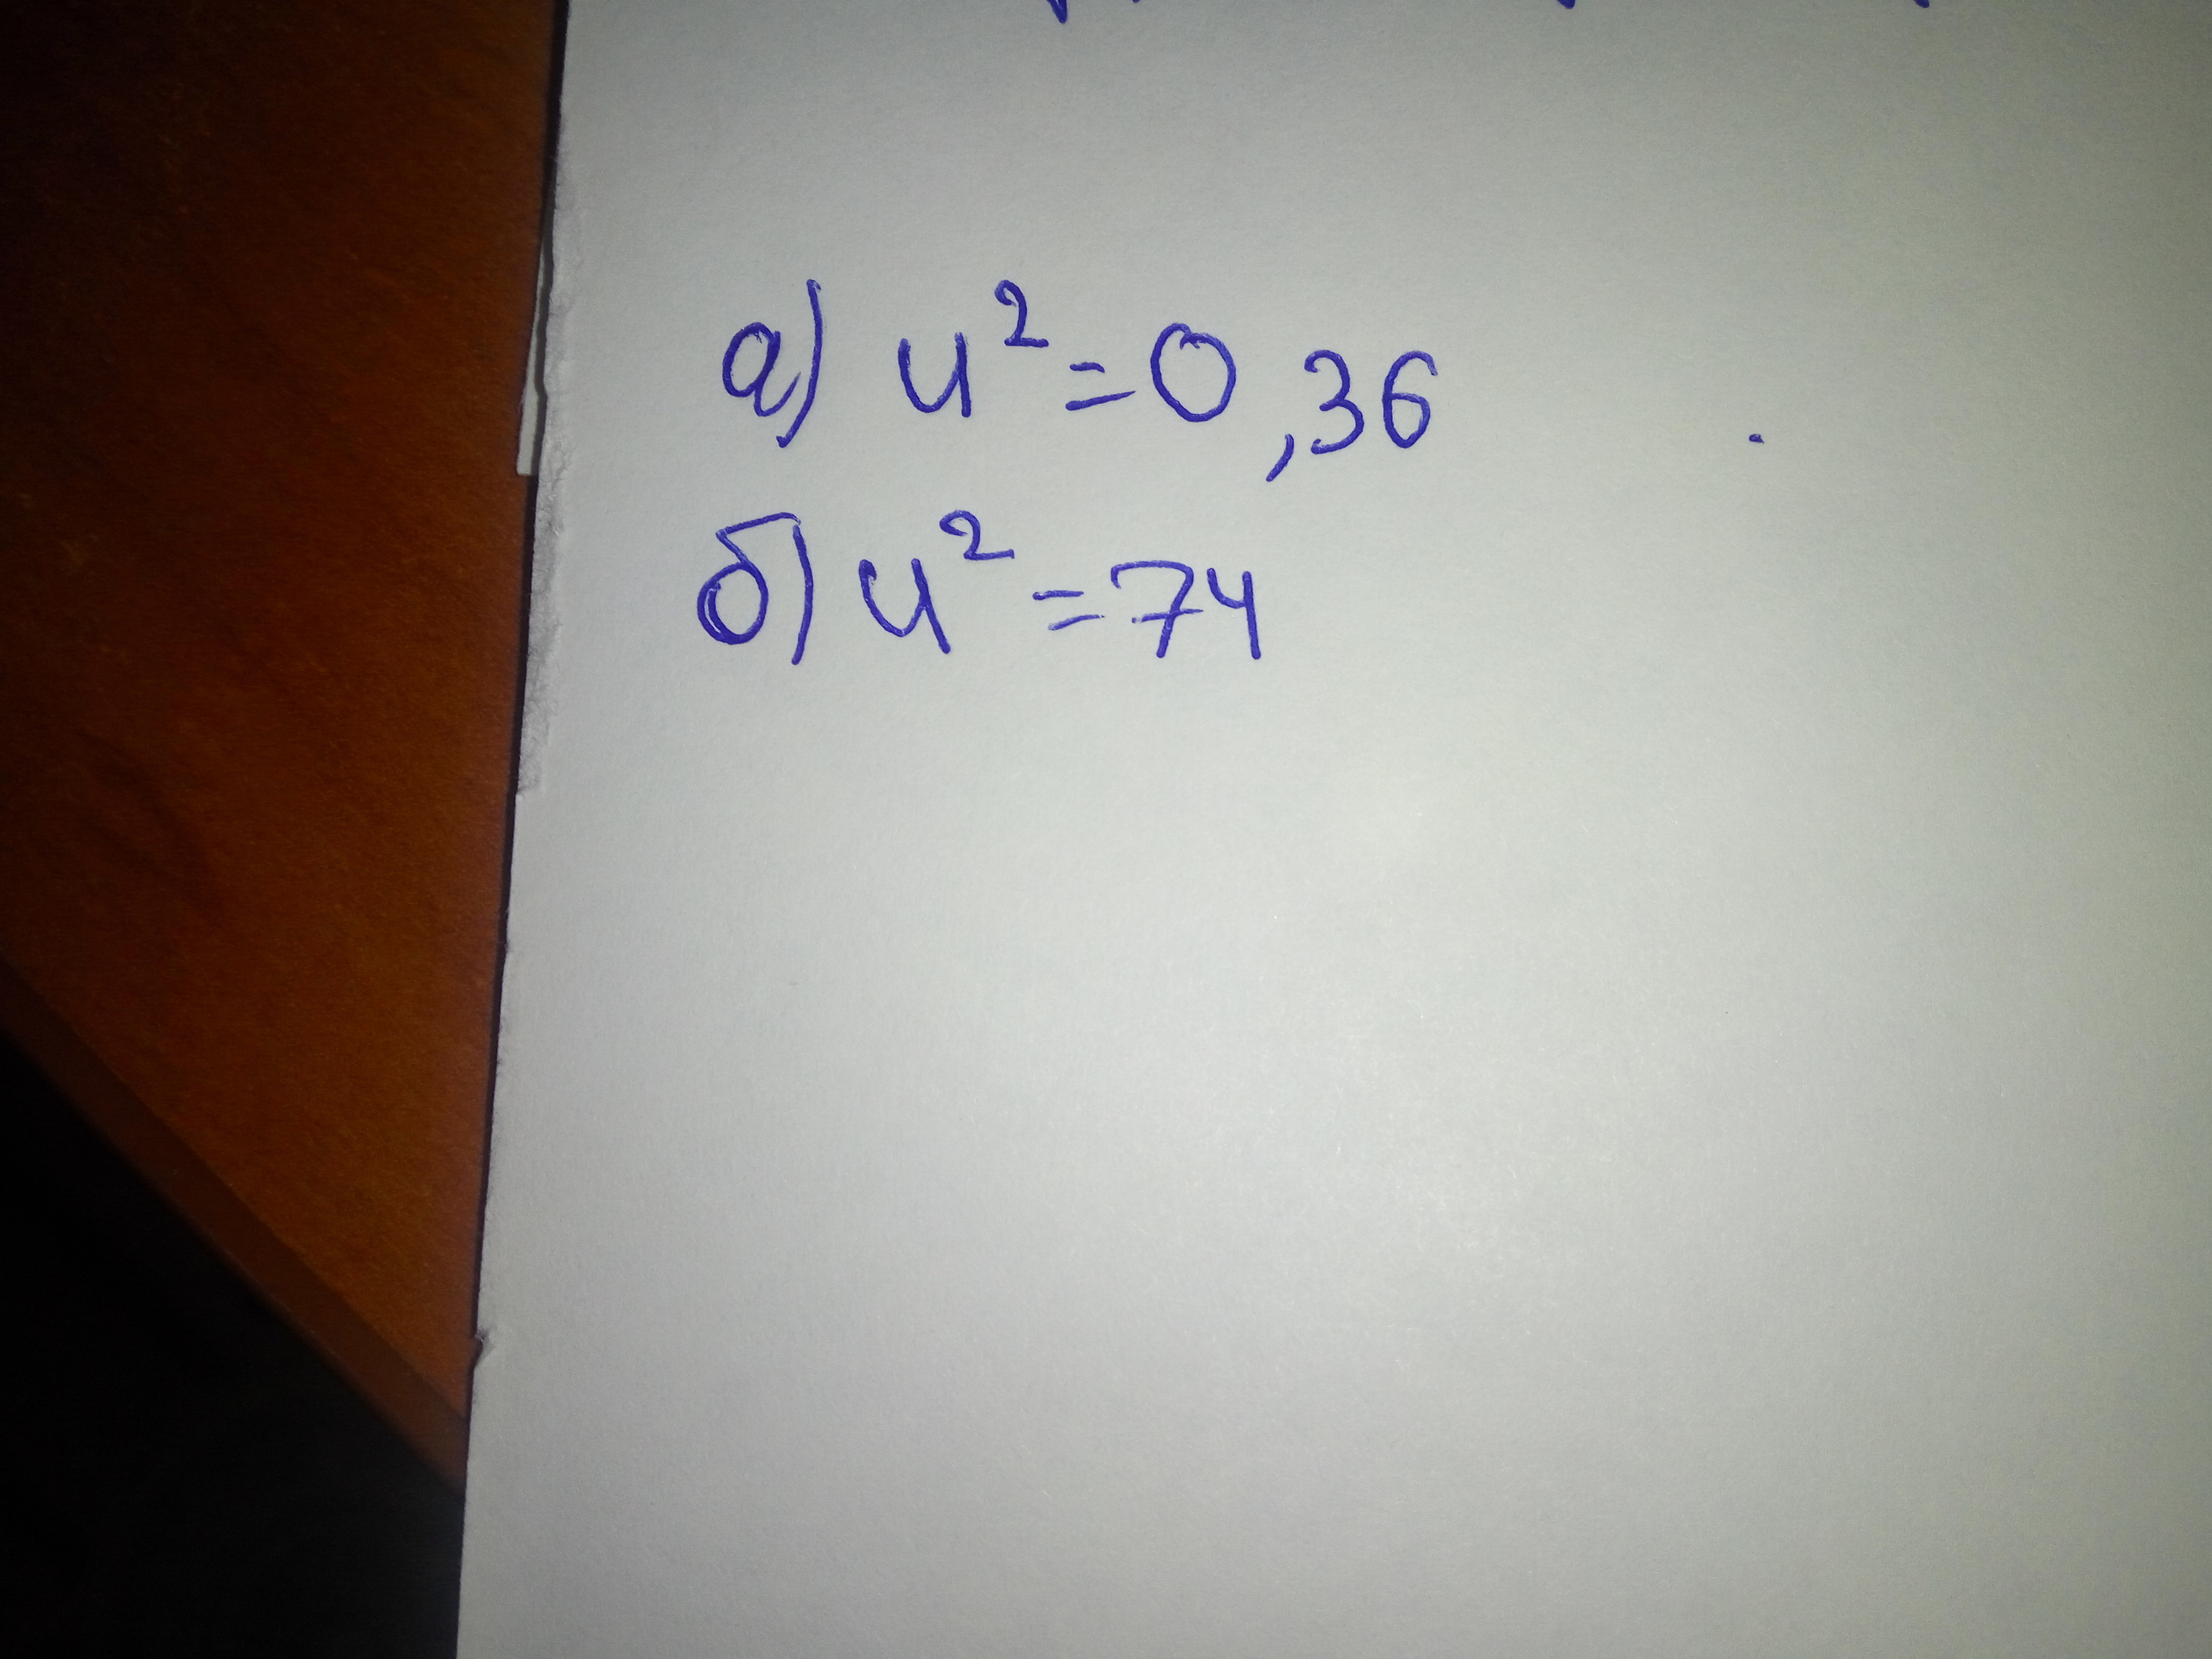 а) u² = 0,36
б) u² = 74